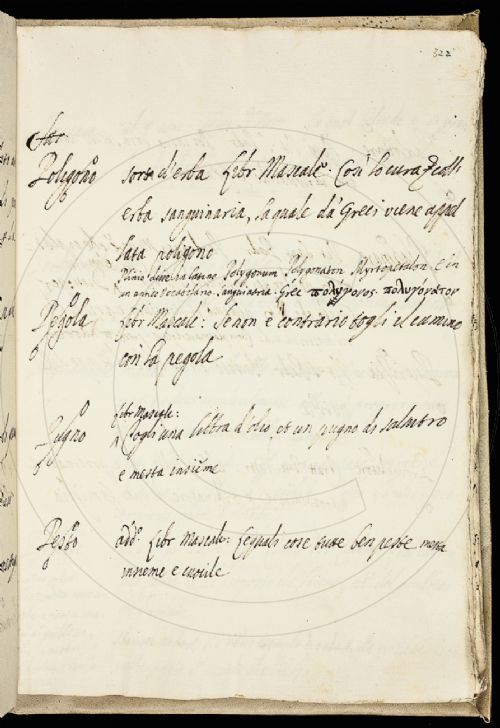 322
Poligono sorte d'erba. Libr Mascalc. Così lo cura
erba sanguinaria, la quale da Greci viene appel
lata poligono
latino Polygonum Polygonaton Myrtopetalon, e in
un antico vocabolario Sanguinaria. Grec
Pegola Libr Mascalc: Se non è contrario togli il cumino
con la pegola
Libr Mascalc:
Pugno Togli una libbra d'olio, et un pugno di salnitro
e mesta insieme
Pesto add. Libr Mascalc: Le quali cose tutte ben peste
insieme e cuocile